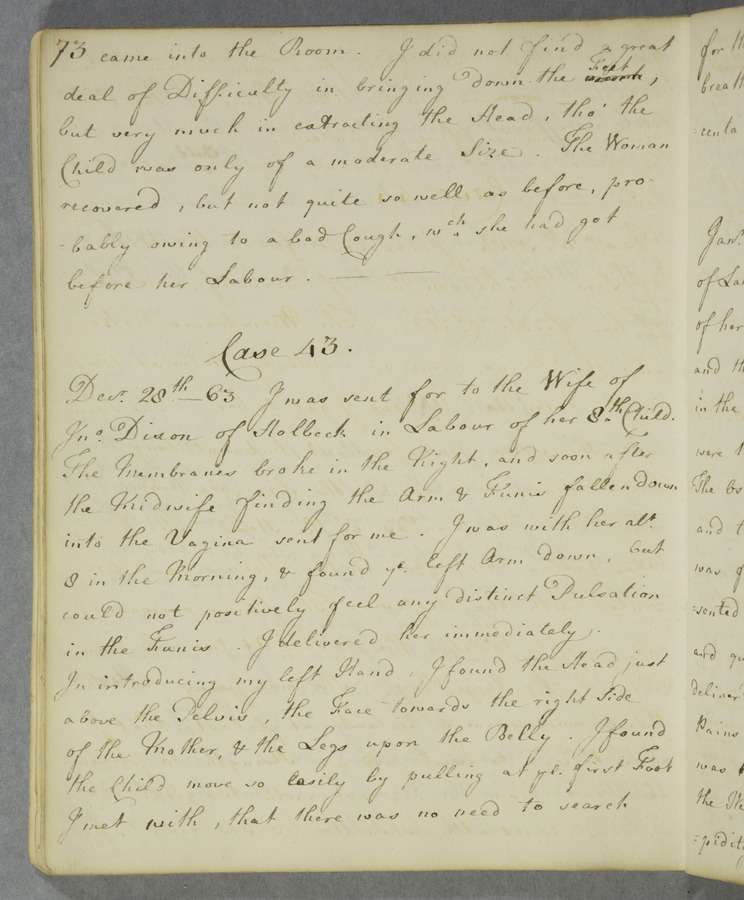 73 came into the Room. I did not find a great
deal of Difficulty in bringing down the Feet,
but very much in extracting the Head, tho' the
Child was only of a moderate Size. The Woman
recovered, but not quite so well as before, pro-
-bably owing to a bad Cough, wch. she had got
before her Labour.
Case 43.
Decr. 28th — 63 I was sent for to the Wife of
Jno. Dixon of Holbeck in Labour of her 8th. Child.
The Membranes broke in the Night, and soon after
the Midwife finding the Arm & Funis fallen down
into the Vagina sent for me. I was with her abt.
8 in the Morning, & found ye. left Arm down, but
could not positively feel any distinct Pulsation
in the Funis. I delivered her immediately.
In introducing my left Hand, I found the Head just
above the Pelvis, the Face towards the right Side
of the Mother, & the Legs upon the Belly. I found
the Child move so easily by pulling at ye. first Foot
I met with, that there was no need to search
for th
breath
-centa
Jany.
of La
of her
and th
in the
were t
The
and t
was f
-sented
and qu
deliver
Pains
was
the He
-pidity